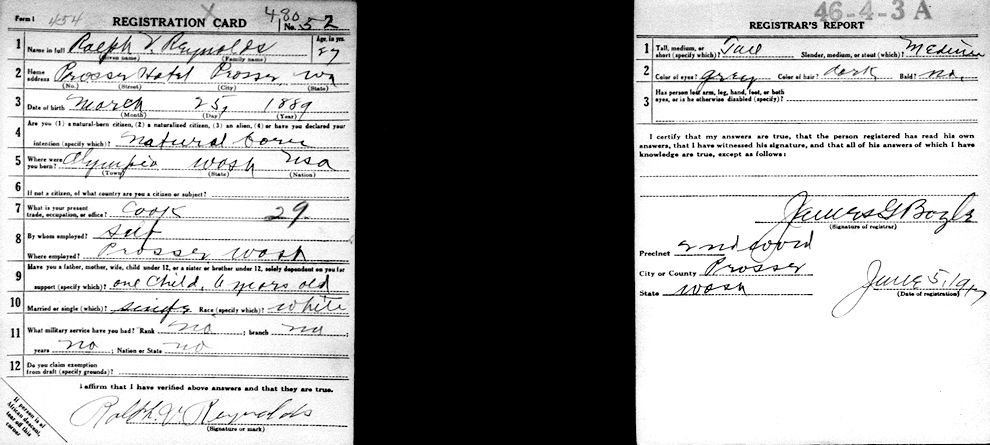 Form 1 454 REGISTRATION CARD 480 No. 52
1 Name in full Ralph V. Reynolds Age, in yrs. 27
(Given name) (Family name)
2 Home address Prosser Hotel Prosser Wa
(No.) (Street) (City) (State)
3 Date of birth March 25, 1889
(Month) (Day) (Year)
4 Are you (1) a natural-born citizen, (2) a naturalized citizen, (3) an alien, (4) or have you declared your
intention (specify which)? Natural born
5 Where were you born? Olympia Wash USA
(Town) (State) (Nation)
6 If not a citizen, of what country are you a citizen or subject?
7 What is your present trade, occupation, or office? Cook 29
8 By whom employed? Self
Where employed? Prosser Wash
9 Have you a father, mother, wife, child under 12, or a sister or brother under 12, solely dependent on you for
support (specify which)? one Child, 6 years old
10 Married or single (which)? single Race (specify which)? White
11 What military service have you had? Rank no ; branch no
years no ; Nation or State no
12 Do you claim exemption from draft (specify grounds)?
I affirm that I have verified above answers and that they are true.
Ralph. V. Reynolds
(Signature or mark)
If person is of
African descent,
tear off this
corner
46-4-3 A
REGISTRAR'S REPORT
1 Tall, medium, or short (specify which)? Tall Slender, medium, or stout (which)? Medium
2 Color of eyes? grey Color of hair? dark Bald? no.
3 Has person lost arm, leg, hand, foot, or both
eyes, or is he otherwise disabled (specify)?
I certify that my answers are true, that the person registered has read his own
answers, that I have witnessed his signature, and that all of his answers of which I
have knowledge are true, except as follows:
James G Boyle
(Signature of registrar)
Precinct 2nd Ward
City or County Prosser
State Wash
June 5, 1917
(Date of registration)